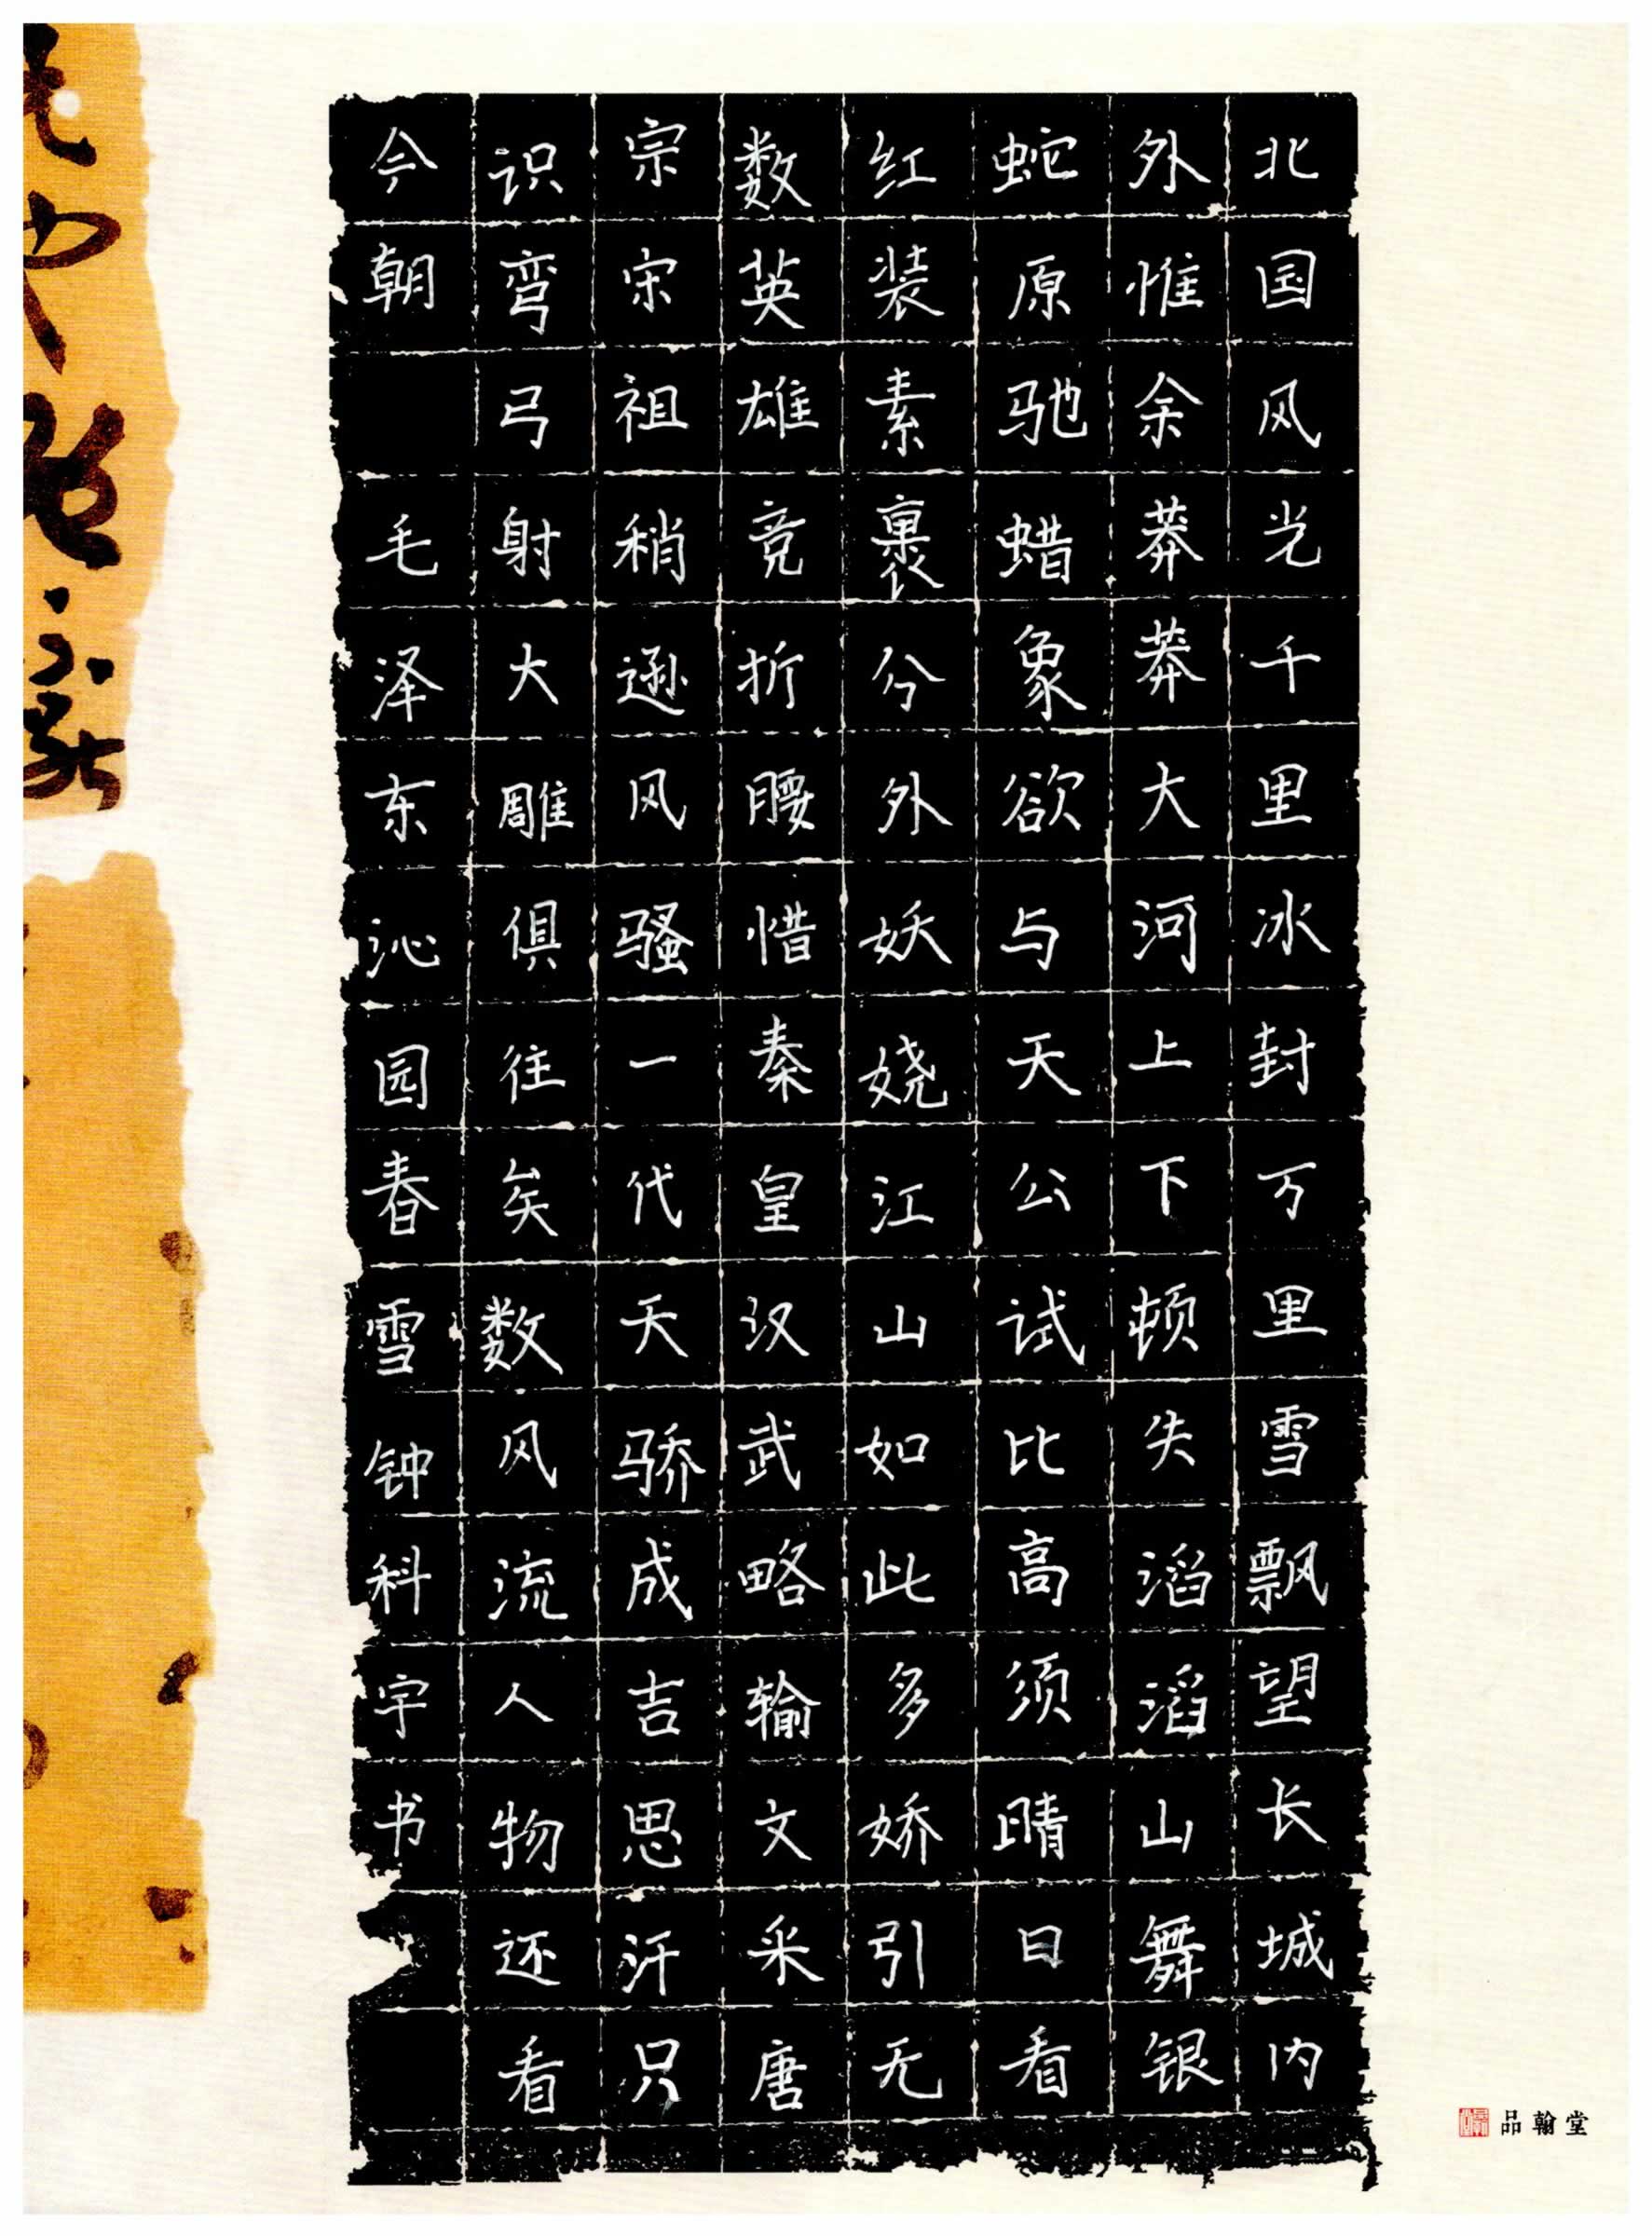 北国风光千里冰封万里雪飘望长城内
外惟余莽莽大河上下顿失滔滔山舞银
蛇原驰蜡象欲与天公试比高须晴日看
红装素裹分外妖娆江山如此多娇引无
数英雄竞折腰惜秦皇汉武略输文采唐
宗宋祖稍逊风骚一代天骄成吉思汗只
识弯弓射大雕俱往矣数风流人物还看
今朝 毛泽东沁园春雪钟科宇书
品翰堂